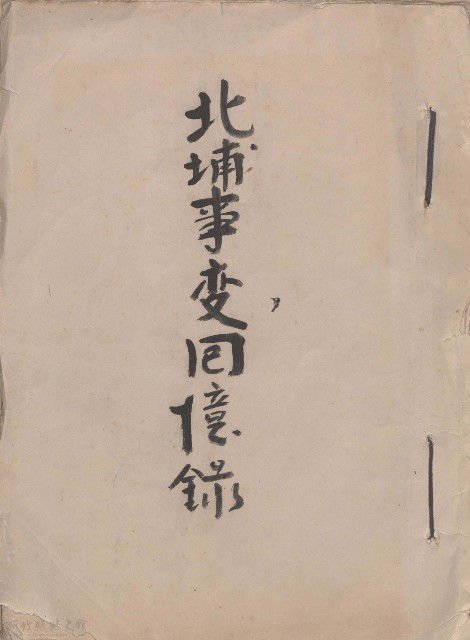 北埔事变回憶錄